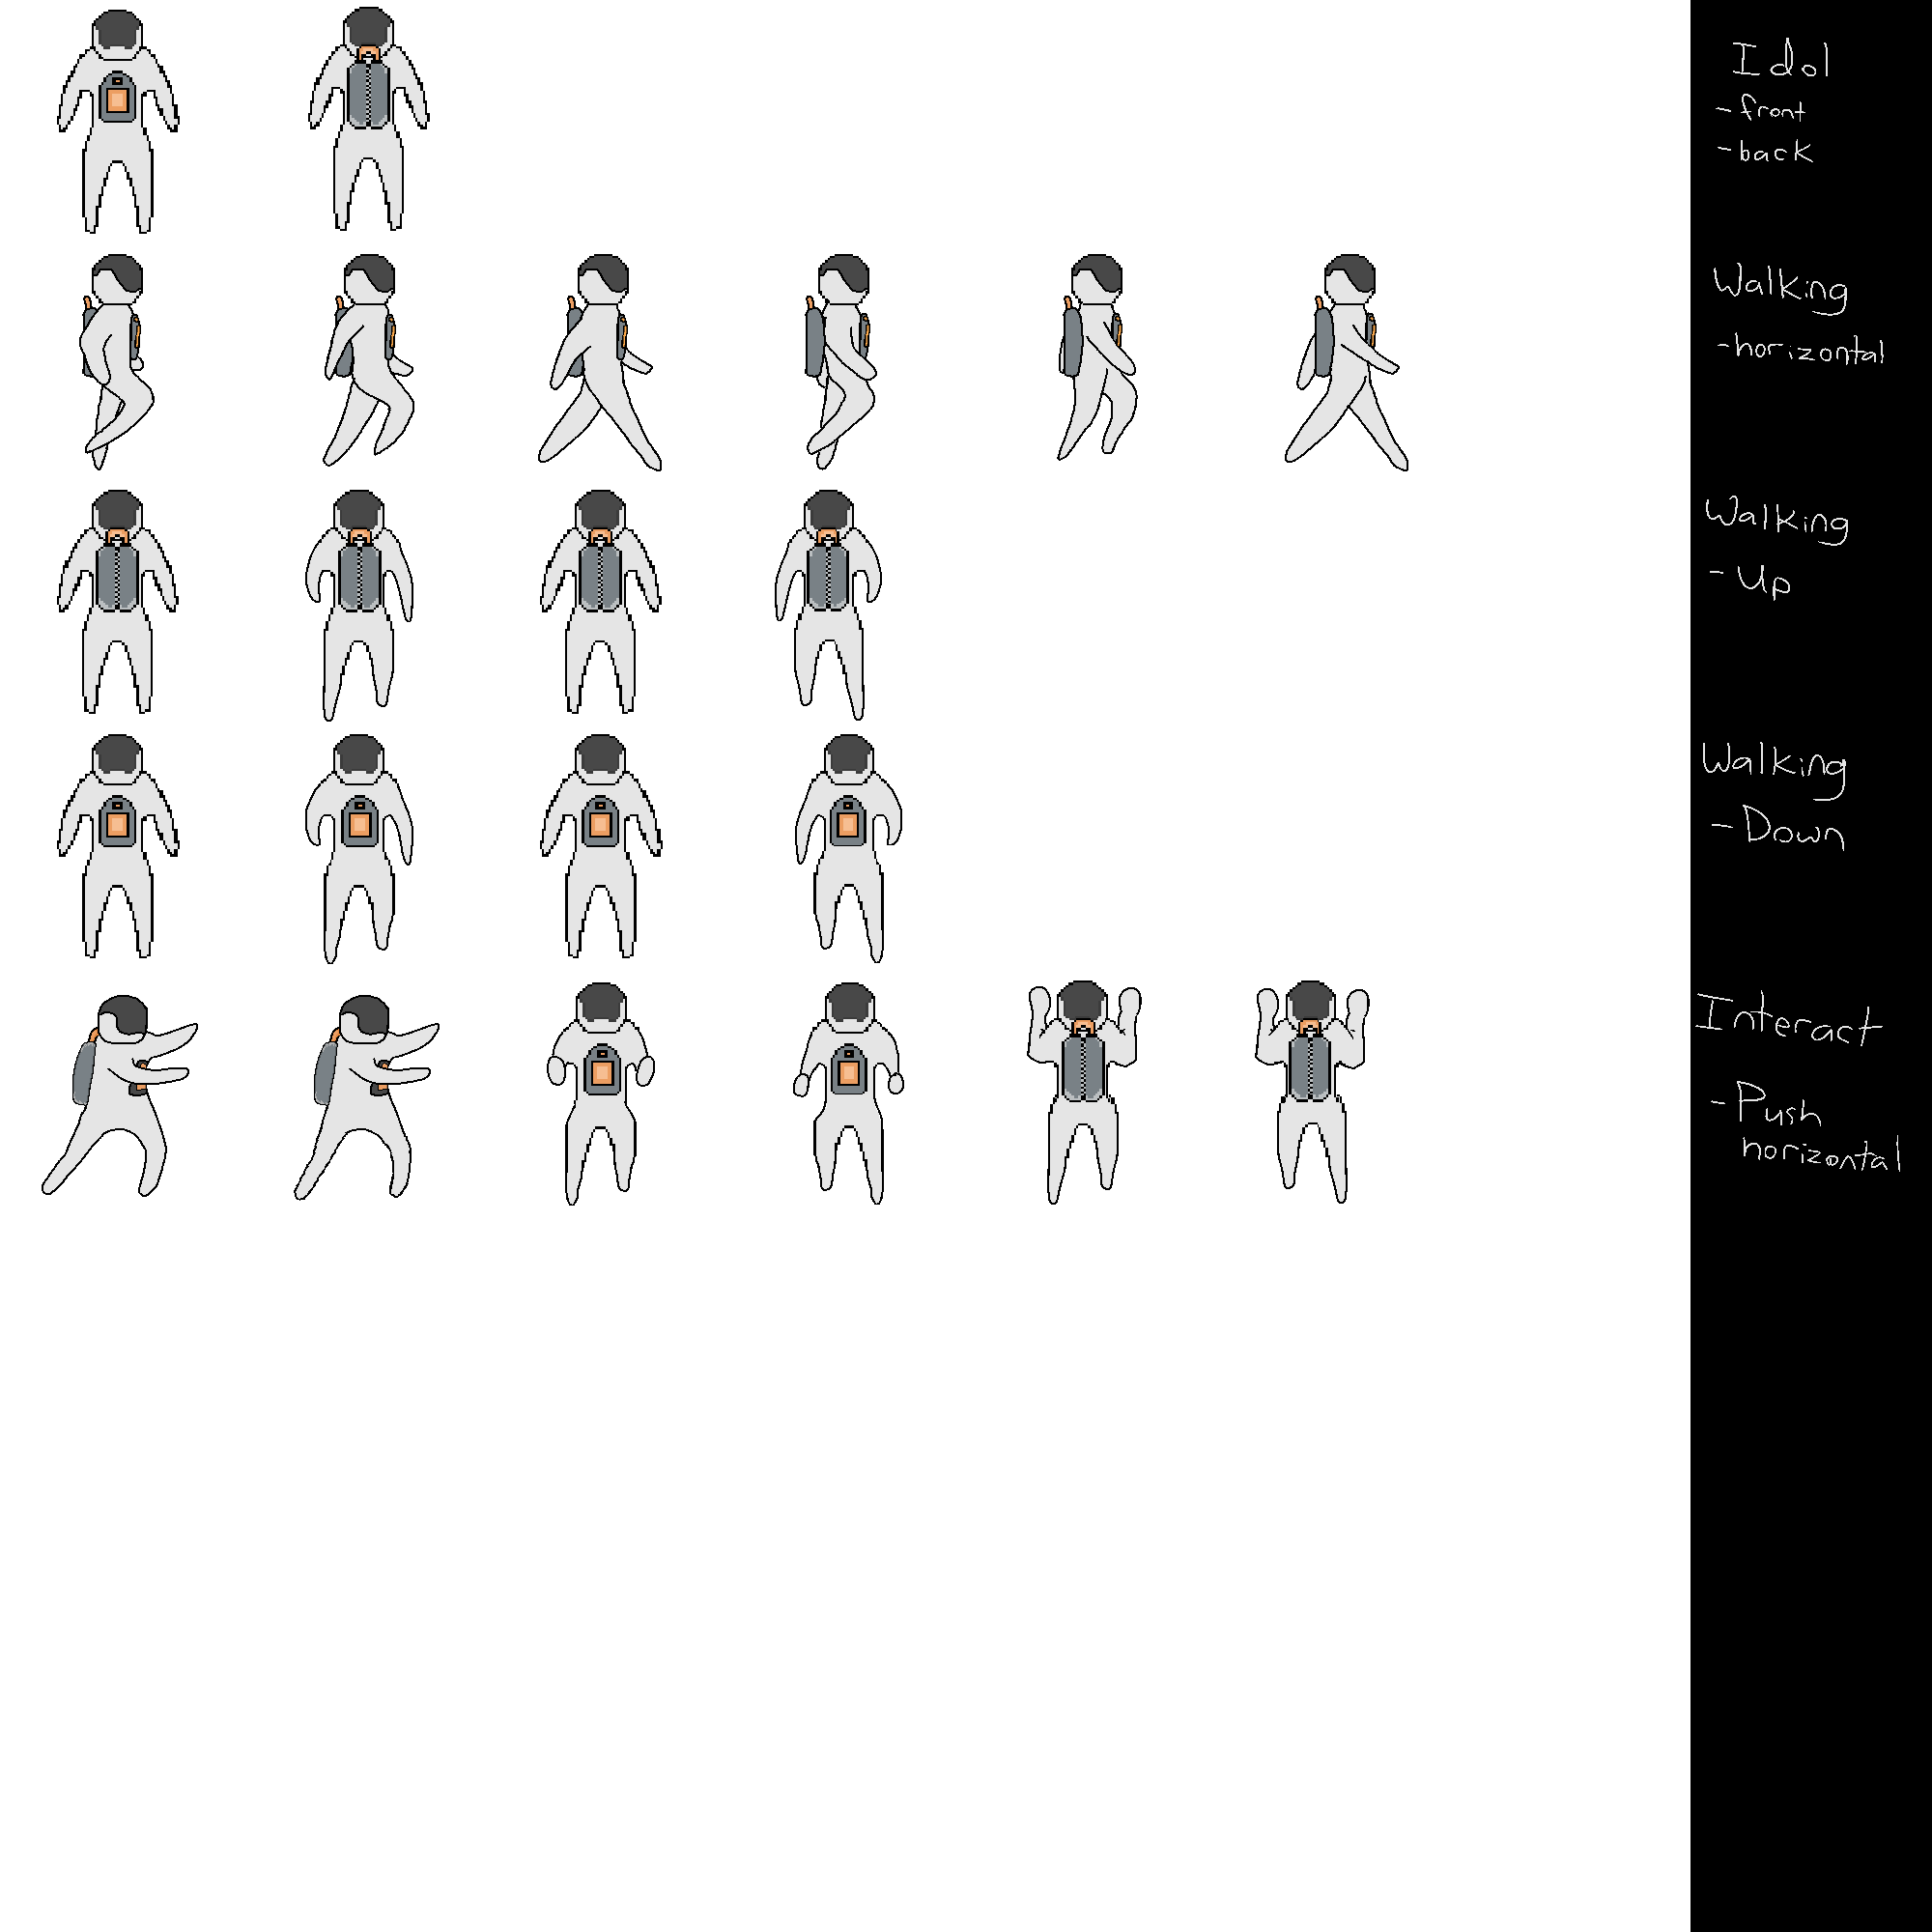 Idol
- front
- back
Walking
- horizontal
Walking
- Up
Walking
- Down
Interact
- Push
horizontal